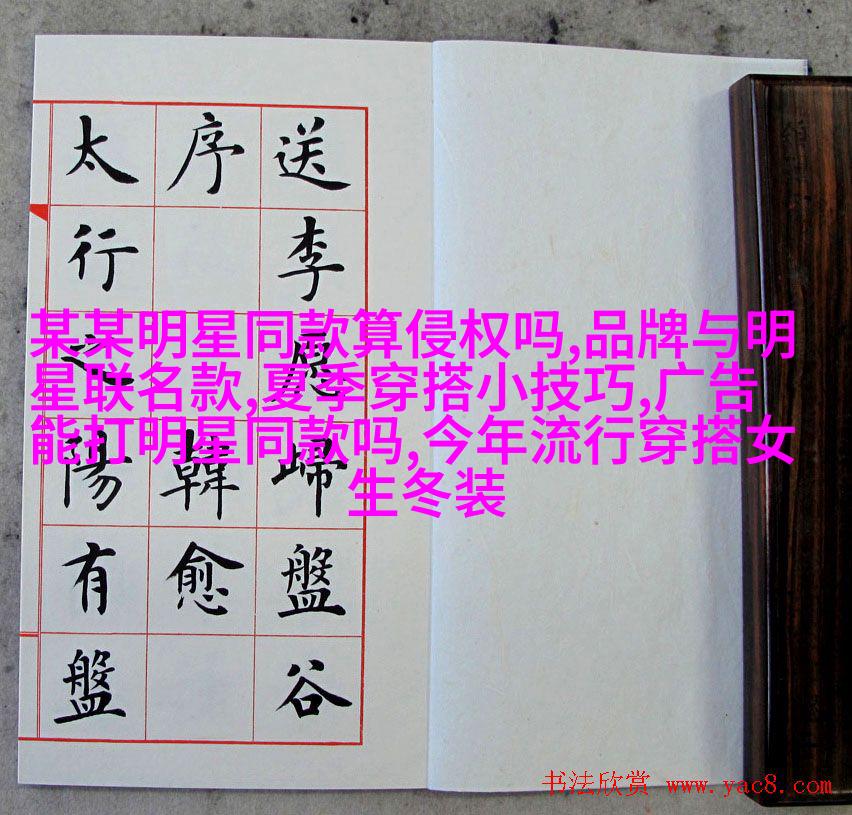 送李愿歸盤谷
序 韓愈
太行之陽有盤
某某明星同款算侵权吗,品牌与明
星联名款,夏季穿搭小技巧,广告
能打明星同款吗,今年流行穿搭女
生冬装
书法欣赏 www.yac8.com